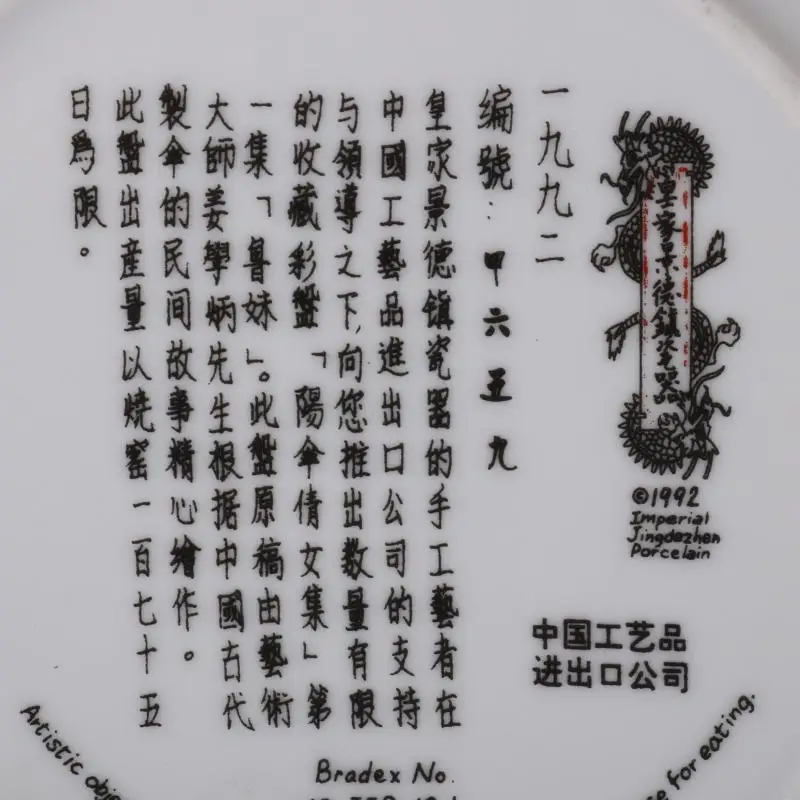 皇家景德鎮瓷器
©1992
Imperial
Jingdezhen
Porcelain
中国工艺品
进出口公司
一九九二
编號：甲六五九
皇家景德鎮瓷器的手工藝者在
中國工藝品進出口公司的支持
与領導之下,向您推出数量有限
的收藏彩盤「陽傘倩女集」第
一集「魯妹」。此盤原稿由藝術
大師姜學炳先生根据中國古代
製傘的民间故事精心繪作。
此盤出産量以烧窑一百七十五
日為限。
Artistic obje
se for eating.
Bradex No.